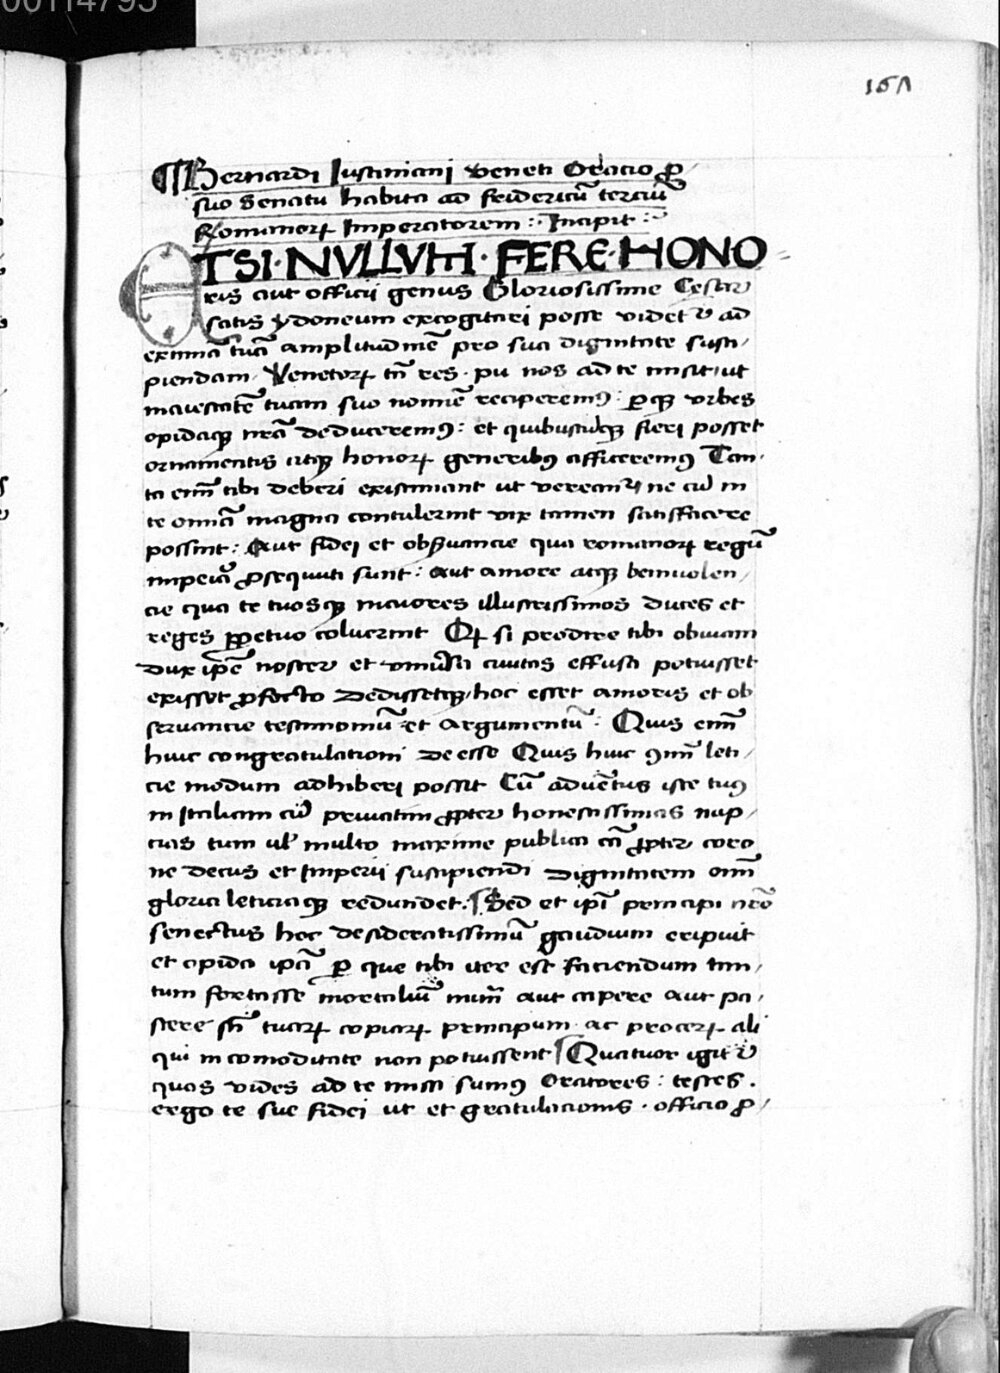 00114795
161
Bernardi Iustiniani veneti Oracio ꝓ
suo Senatu habita ad fridericũ terciũ
Romanorꝝ Imperatorem : Incipit :
ETSI · NVLLVM · FERE · HONO
ris aut officii genus Gloriosissime Cesar
satis ydoneum excogitari posse videtᷣ ad
eximiã tuã amplitudinẽ pro sua dignitate susci
piendam Venetorꝝ tñ res · pu nos ad te misit ut
maiestatẽ tuam suo nomiẽ reciperemꝰ : ꝑqꝫ vrbes
opidaqꝫ nr̃a deduceremꝰ : et quibuscũqꝫ fieri posset
ornamentis atqꝫ honorꝝ generibꝰ afficeremꝰ Tan
ta enĩ tibi deberi existimant ut vereantᷣ ne cũ in
te omĩa magna contulerint vix tamen satisfacere
possint : Aut fidei et obẜuancie qua romanorꝝ regũ
imperiũ ꝓsequuti sunt : aut amore atqꝫ beniuolen
cie qua te tuosqꝫ maiores illustrissimos duces et
reges ꝑpetuo coluerint Qꝝ si prodire tibi obuiam
dux ip̃e noster et vniuẜa ciuitas effusa potuisset
exisset ꝓfecto dedissetqꝫ hoc esset amoris et ob
seruancie testimoniũ et argumentũ : Quis enĩ
huic congratulationi deesse Quis huic ꝯmĩ leti
cie modum adhiberi possit Cũ aduẽtus iste tuꝰ
in Italiam cũ priuatim ꝓpter honestissimas nup
cias tum ul̃ multo maxime publica cã ꝓpter coro
ne decus et Imperii suscipiendi dignitatem omĩ
gloria leticiaqꝫ redundet : Sed et ip̃i principi nr̃o
senectus hoc desideratissimũ gaudium eripuit
et opida ip̃a ꝑ que tibi iter est faciendum tan
tum fortasse mortaliũ nuȓm aut capere aut pa
scere sñ tuarꝝ copiarꝝ principum ac procerꝝ ali
qui incomoditate non potuissent Quatuor igitᷣ
quos vides ad te missi sumꝰ Oratores : testes ·
ergo te sue fidei ut et gratulacionis · officio ꝓ